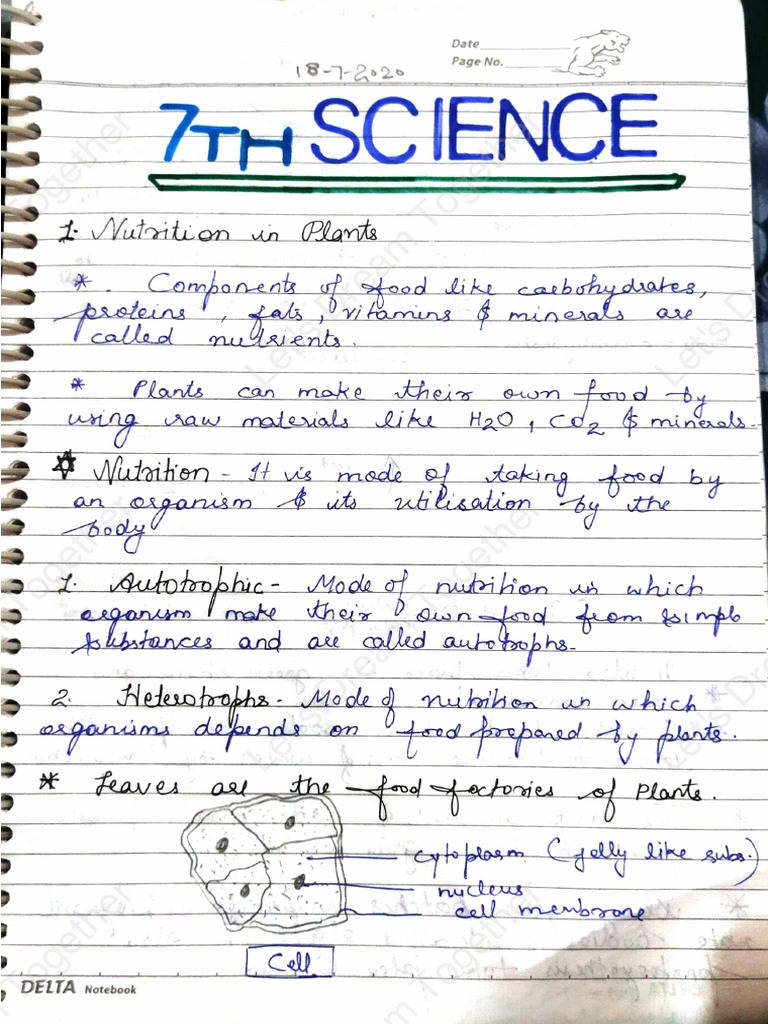 Date
Page No.
18-7-2020
7TH SCIENCE
1. Nutrition in Plants
* . Components of food like carbohydrates,
proteins , fats , vitamins & minerals are
called nutrients.
* Plants can make their own food by
using raw materials like H2O , CO2 & minerals.
☆ Nutrition - It is mode of taking food by
an organism & its utilisation by the
body
1. Autotrophic - Mode of nutrition in which
organism make their own food from simple
substances and are called autotrophs.
2. Heterotrophs - Mode of nutrition in which
organisms depends on food prepared by plants.
* Leaves are the food factories of Plants.
cytoplasm (jelly like subs.)
nucleus
cell membrane
Cell
DELTA Notebook
Let's Dream Together